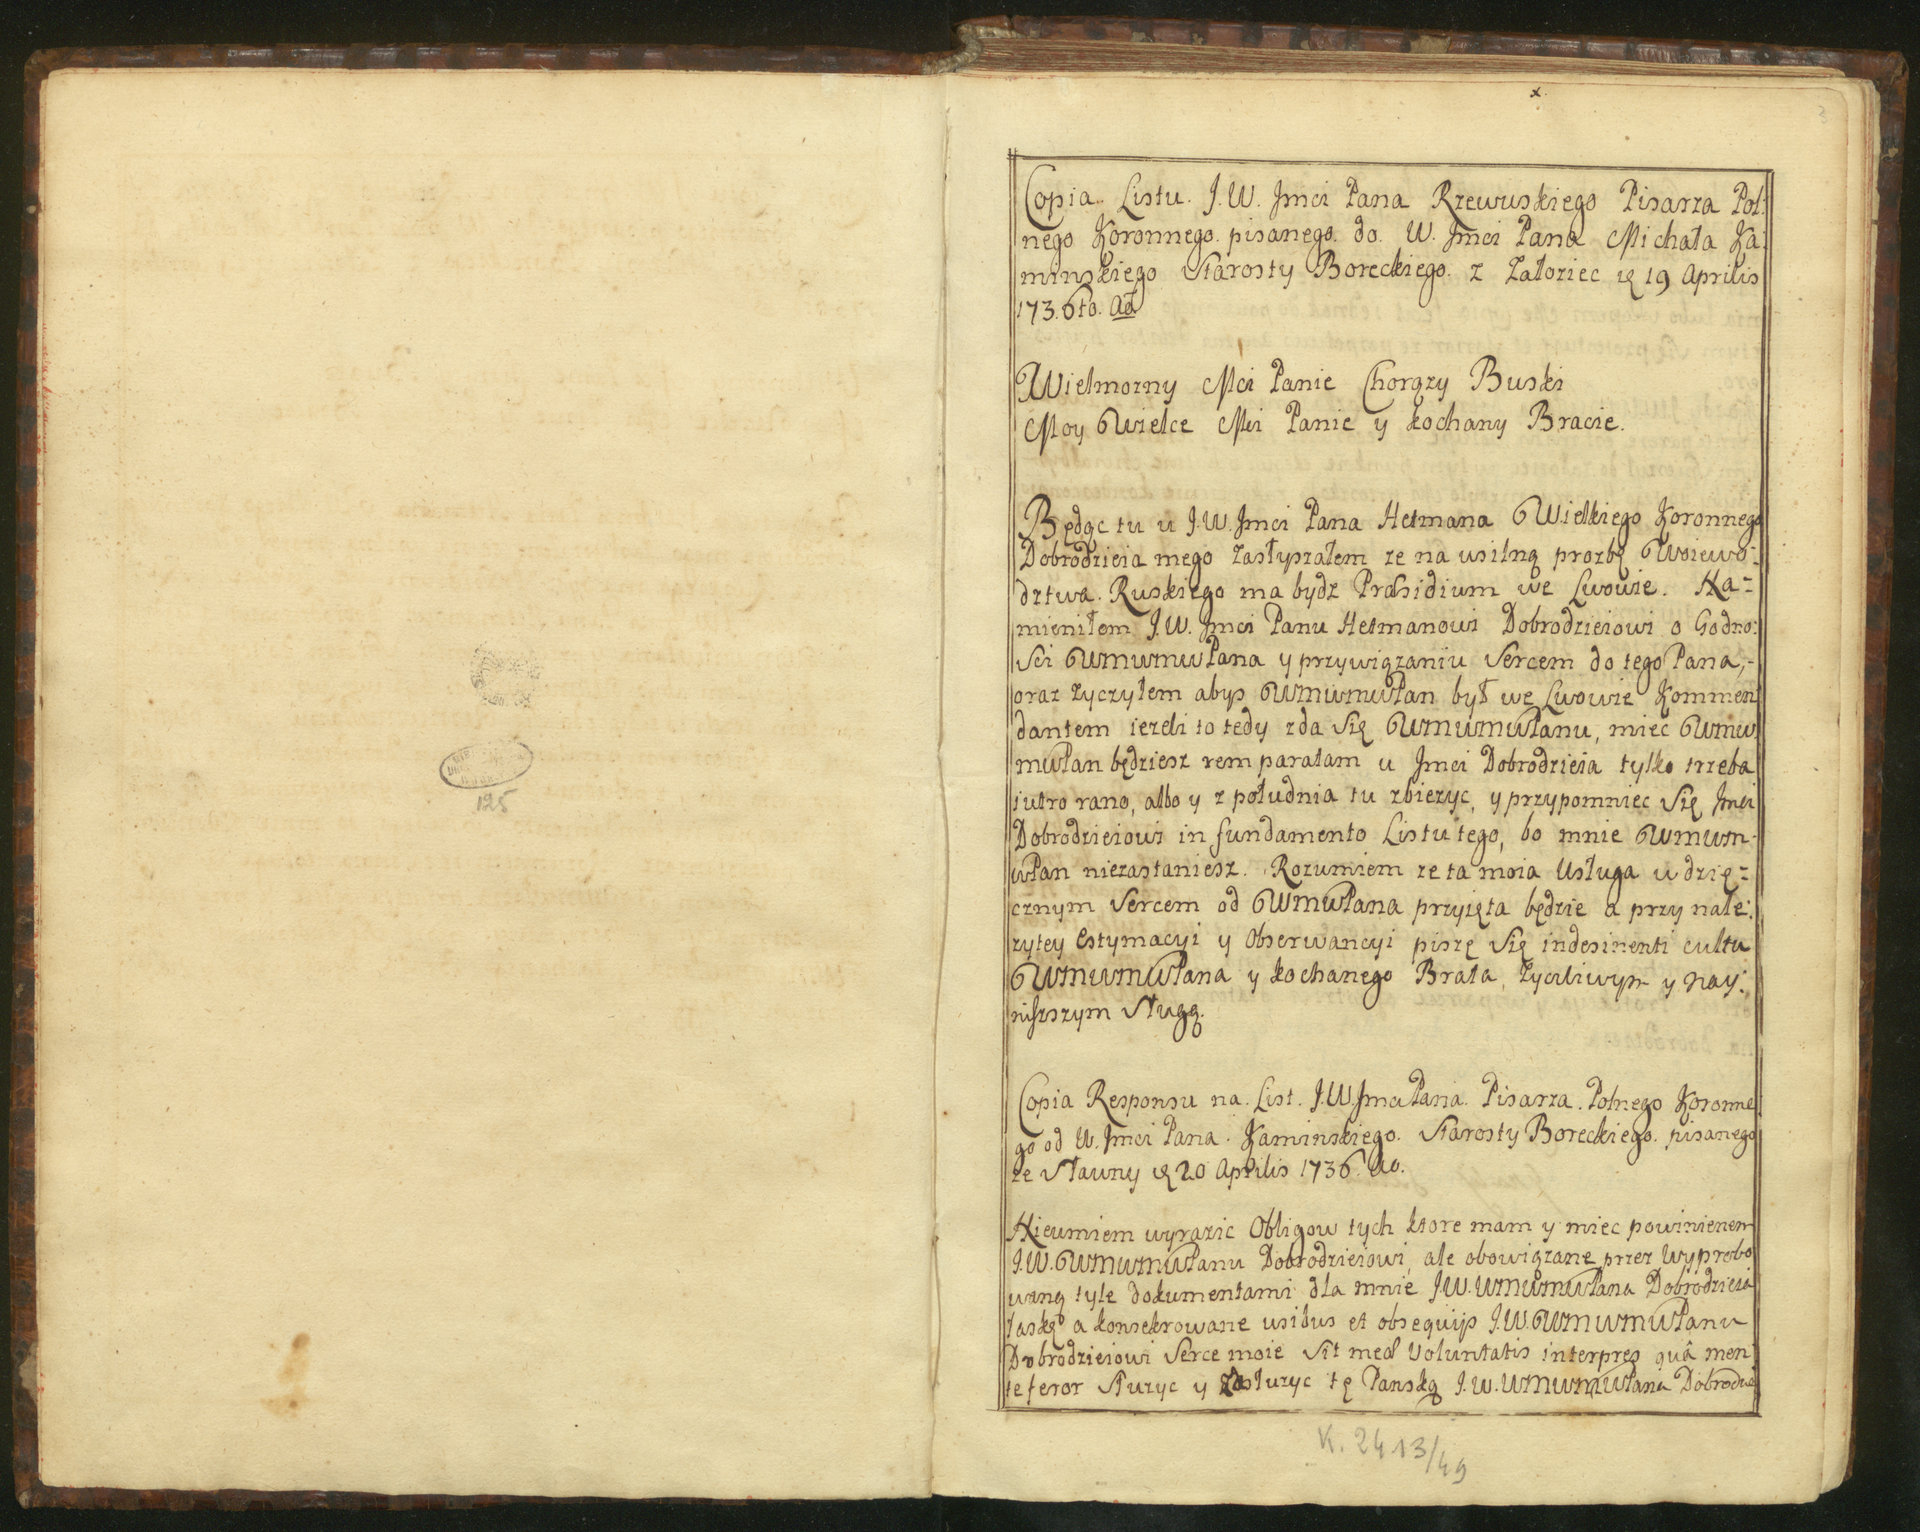 125
x
3
Copia. Listu. J.W. Jmci Pana Rzewuskiego Pisarza Pol:
nego Koronnego. pisanego. do. W. Jmci Pana Michała Ka:
minskiego Starosty Boreckiego. z Załoziec 19 Aprilis
173.6to.
Wielmozny Mci Panie Chorązy Buski
Moy Wielce Mci Panie y kochany Bracie.
Będąc tu u J.W. Jmci Pana Hetmana Wielkiego Koronnego
Dobrodzieia mego zasłyszałem ze na usilną prozbę Woiewo-
dztwa. Ruskiego ma bydz Præsidium we Lwowie. Na-
mieniłem J.W. Jmci Panu Hetmanowi Dobrodzieiowi o Godno:
sci WMWMWPana y przywiązaniu Sercem do tego Pana,-
oraz zyczyłem abys WMWMWPan był we Lwowie Kommen
dantem iezeli to tedy zda Się WMWMWPanu, miec WMW
MWPan będziesz rem paratam u Jmci Dobrodzieia tylko trzeba
iutro rano, albo y z południa tu zbiezyc, y przypomniec Się Jmci
Dobrodzieiowi in fundamento Listu tego, bo mnie WMWM-
WPan niezastaniesz. Rozumiem ze ta moia Usługa wdzię-
cznym Sercem od WMWPana przyięta będzie a przy nale:
zytey Estymacyi y Obserwancyi piszę Się indesinenti cultu
WMWMWPana y kochanego Brata, Zyczliwym y nay:
niszszym Sługą.
Copia Responsu na. List. J.W. Jmci Pana. Pisarza. Polnego Koronne
go od W. Jmci Pana. Kaminskiego. Starosty Boreckiego. pisanego
ze Sławny 20 Aprilis 1736. Ao.
Nieumiem wyrazic Obligow tych ktore mam y miec powinienem
J.W. WMWMWPanu Dobrodzieiowi, ale obowiązane przez Wyprobo
waną tyle dokumentami dla mnie J.W. WMWMWPana Dobrodzieia
łaskę a konsekrowane usibus et obsequijs J.W. WMWMWPanu
Dobrodzieiowi Serce moie Sit meæ Voluntatis interpres quâ men
te feror Słuzyc y zasłuzyc tę Panską J.W. WMWMWPana Dobrodzie
K. 2413/49